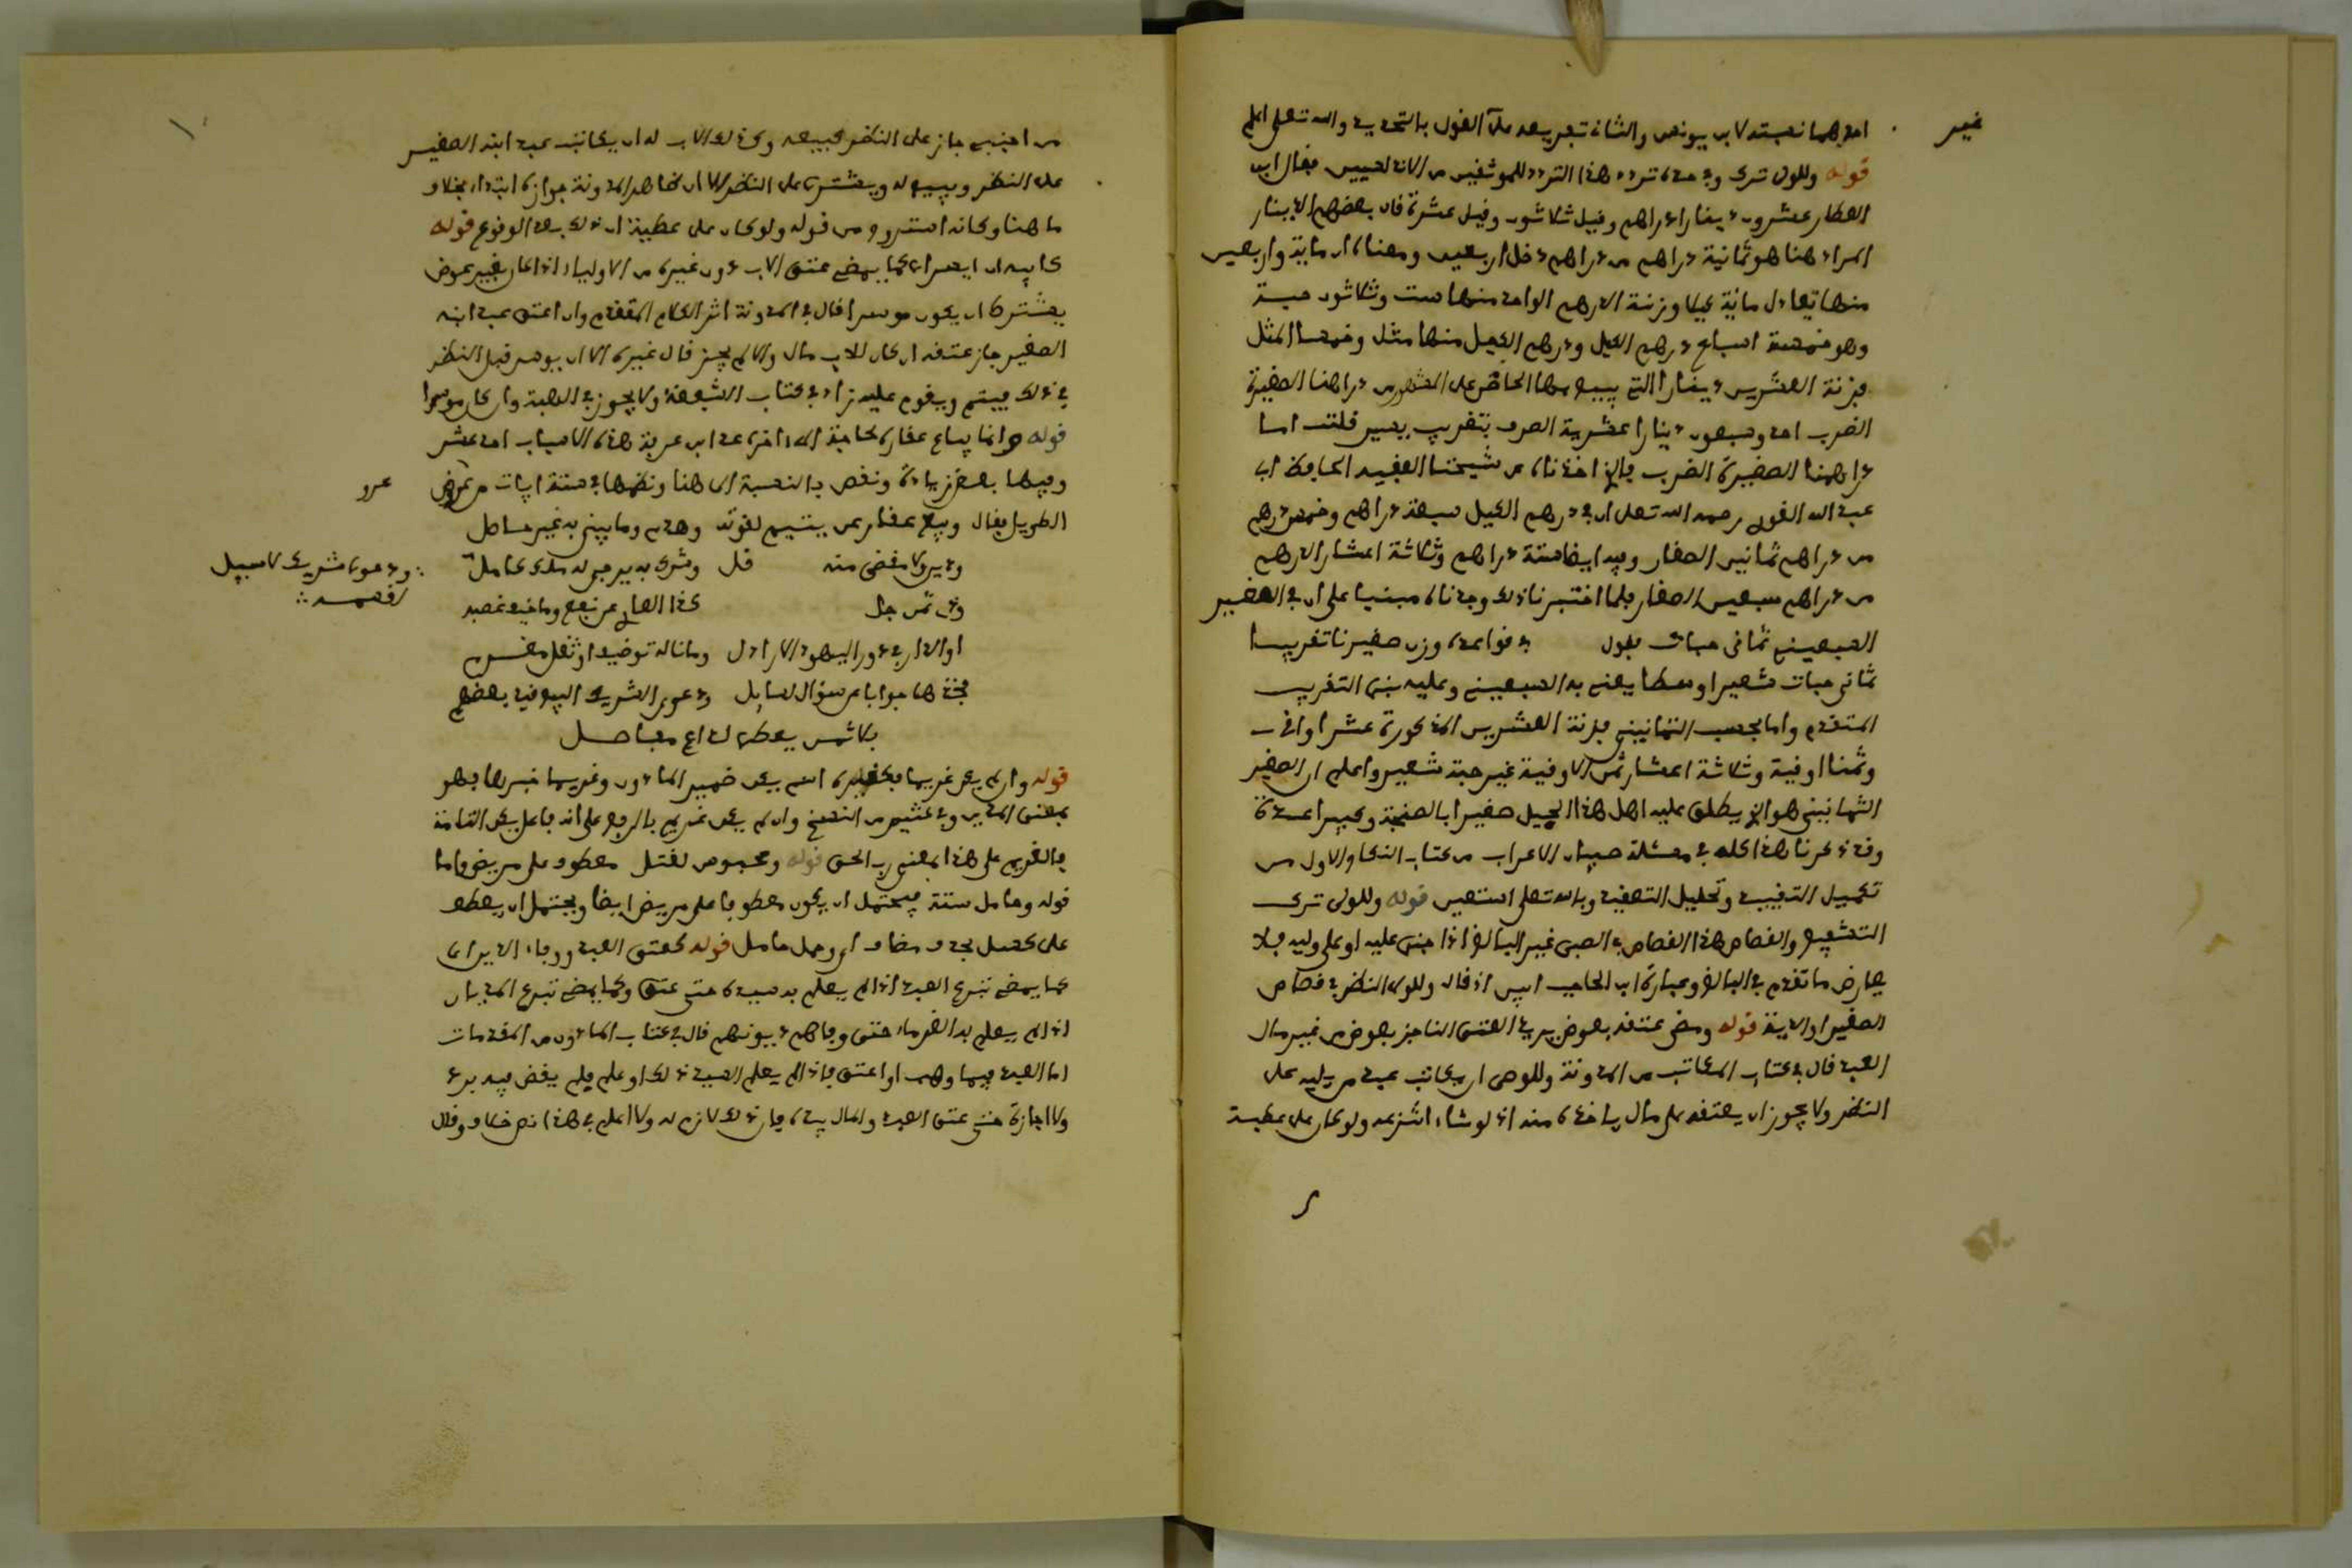 احدهما نسبته لابن يونس والثاني تعريفه مآل القول بالتحديد والله تعلى اعلم
غير
قوله وللولي ترك وفي حده تردد هذا التردد للموثقين من الاندلسيين فقال ابن
العطار عشرون دينارا دراهم وقيل ثلاثون وقيل عشرة قال بعضهم الدينار
المراد هنا هو ثمانية دراهم من دراهم دخل اربعين ومعناه ان ماية واربعين
منها تعادل ماية كيلا وزنة الدرهم الواحد منها ست وثلاثون حبة
وهو خمسة اسباع درهم الكيل ودرهم الكيل منها مثل وخمسا المثل
فزنة العشرين دينارا التي يبيع بها الحاضن على المشهور من دراهمنا الصغيرة
الضرب احد وسبعون دينارا عشرية الصرف بتقريب يسير قلت اما
دراهمنا الصغيرة الضرب فالذي اخذناه عن شيخنا الفقيه الحافظ ابي
عبد الله القوري رحمه الله تعلى ان في درهم الكيل سبعة دراهم وخمس درهم
من دراهم ثمانين الصغار وفيه ايضا ستة دراهم وثلاثة اعشار الدرهم
من دراهم سبعين الصغار فلما اختبرنا ذلك وجدناه مبنيا على ان في الصغير
السبعيني ثماني حبات فقول في قواعده وزن صغيرنا تقريبا
ثماني حبات شعيرا وسطا يعني به السبعيني وعليه بنى التقريب
المتقدم واما بحسب الثمانيني فزنة العشرين المذكورة عشر اواقي
وثمنا اوقية وثلاثة اعشار ثمن الاوقية غير حبة شعير واعلم ان الصغير
الثمانيني هو الذي يطلق عليه اهل هذا الجيل صغيرا بالصنجة وكبيرا عدة
وقد ذكرنا هذا كله في مسئلة صبيان الاعراب من كتاب النكاح الاول من
تكميل التقييد وتحليل التعقيد وبالله تعلى استعين قوله وللولي ترك
التشفيع والقصاص هذا القصاص في الصبي غير البالغ اذا جني عليه او على وليه فلا
يعارض ما تقدم في البالغ وعبارة ابن الحاجب ابين اذ قال وللولي النظر في قصاص
الصغير او الدية قوله ومضى عتقه بعوض يريد العتق الناجز بعوض من غير مال
العبد قال في كتاب المكاتب من المدونة وللوصي ان يكاتب عبد من يليه على
النظر ولا يجوز ان يعتقه على مال ياخذه منه اذ لو شاء انتزعه ولو كان على عطية
من اجنبي جاز على النظر كبيعه وكذلك الاب له ان يكاتب عبد ابنه الصغير
على النظر ويبيع له ويشتري على النظر الا ان ظاهر المدونة جوازه ابتداء بخلاف
ما هنا وكانه استروح من قوله ولو كان على عطية ان ذلك بعد الوقوع قوله
كابيه ان ايسر اي كما يمضي عتق الاب دون غيره من الاولياء اذا كان بغير عوض
بشرط ان يكون موسرا قال في المدونة اثر الكلام المتقدم وان اعتق عبد ابنه
الصغير جاز عتقه ان كان للاب مال والا لم يجز قال غيره الا ان يوسر قبل النظر
في ذلك فيتم ويقوم عليه زاد في كتاب الشفعة ولا يجوز في الهبة وان كان موسرا
قوله وانما يباع عقاره لحاجة الى اخره عد ابن عرفة هذه الاسباب احد عشر
وفيها بعض زيادة ونقص بالنسبة الى هنا ونظمها في ستة ابيات من عروض
عرو
الطويل فقال وبيع عقار عن يتيم لقوته وهدم وما يبنى به غير حاصل
ودين ولا مقضى منه قل وشرك به يرجى له ملك كامل
∴ ودعوى شريك لا سبيل لقسمه ∴
وفي ثمن جل كذا الصاع عن نفع وما خيف غصبه
او الدار في دور اليهود الاراذل وما ناله توظيف او ثقل مغرم
فخذها جوابا عن سؤال لسايل ودعوى الشريك البيع قيده بعضهم
بلا ثمن يعطى لداع مفاصل
قوله وان لم يكن غريما فكغيره اسم يكن ضمير الماذون وغريما خبرها فهو
بمعنى المدين وفي كثير من النسخ وان لم يكن غريم بالرفع على انه فاعل يكن التامة
فالغريم على هذا بمعنى رب الحق قوله ومحبوس لقتل معطوف على مريض واما
قوله وحامل ستة فيحتمل ان يكون معطوفا على مريض ايضا ويحتمل ان يعطف
على كسل بحذف مضاف اي وحمل حامل قوله كعتق العبد ووفاء الدين اي
كما يمضي تبرع العبد اذا لم يعلم به سيده حتى عتق وكما يمضي تبرع المديان
اذا لم يعلم به الغرماء حتى وفاهم ديونهم قال في كتاب الماذون من المقدمات
اما العبد فيما وهب او اعتق فاذا لم يعلم السيد ذلك او علم فلم يقض فيه برد
ولا اجازة حتى عتق العبد والمال بيده فان ذلك لازم له ولا اعلم في هذا نص خلاف وقال